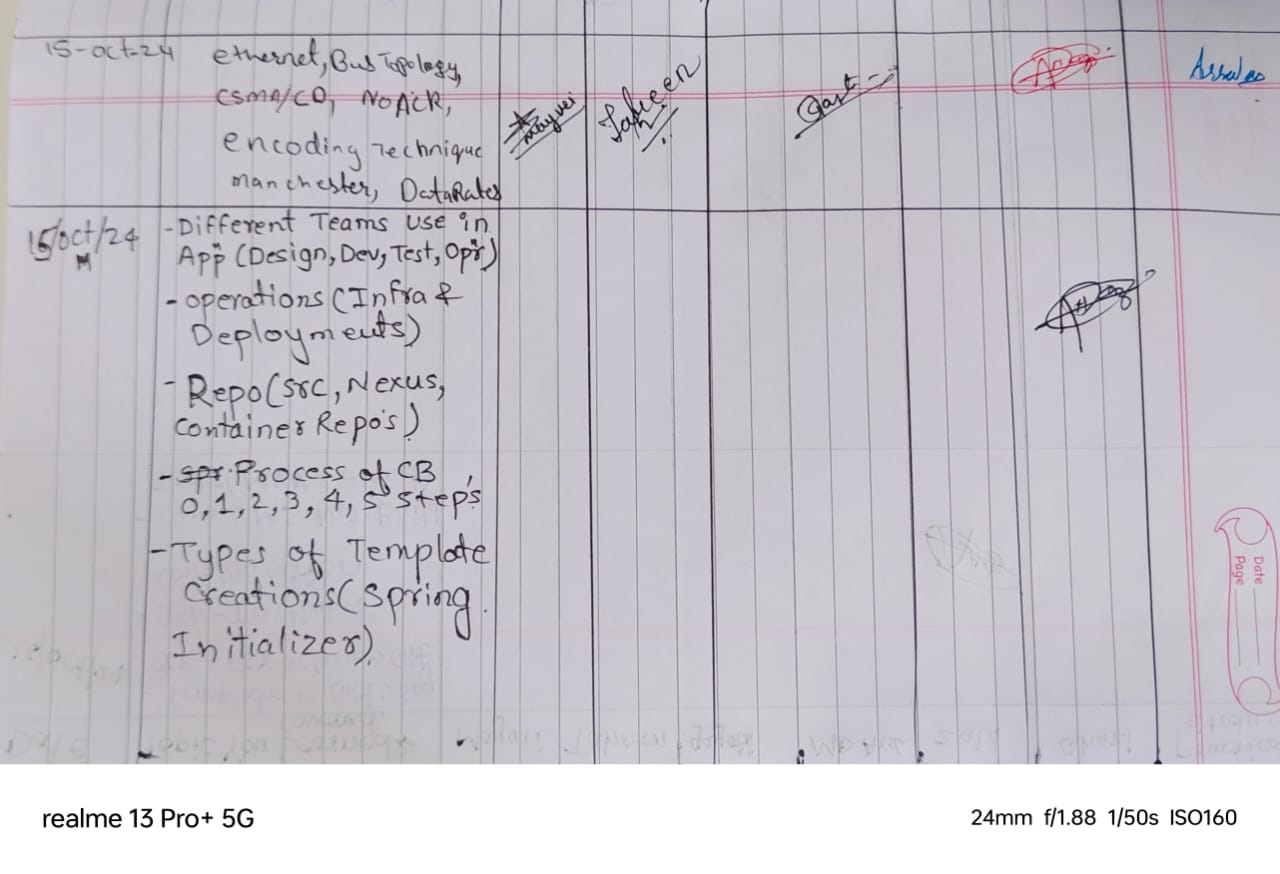 15-oct-24 ethernet, Bus Topology,
CSMA/CD, No ACK,
encoding Technique
manchester, DataRates
Mayuri
Taheen
Assales
15/oct/24
M
- Different Teams use in
App (Design, Dev, Test, Opr)
- operations (Infra &
Deployments)
- Repo (src, Nexus,
Container Repo's)
- Process of CB
0, 1, 2, 3, 4, 5 step's
- Types of Template
Creations (Spring
Initializer)
Date
Page
realme 13 Pro+ 5G
24mm f/1.88 1/50s ISO160